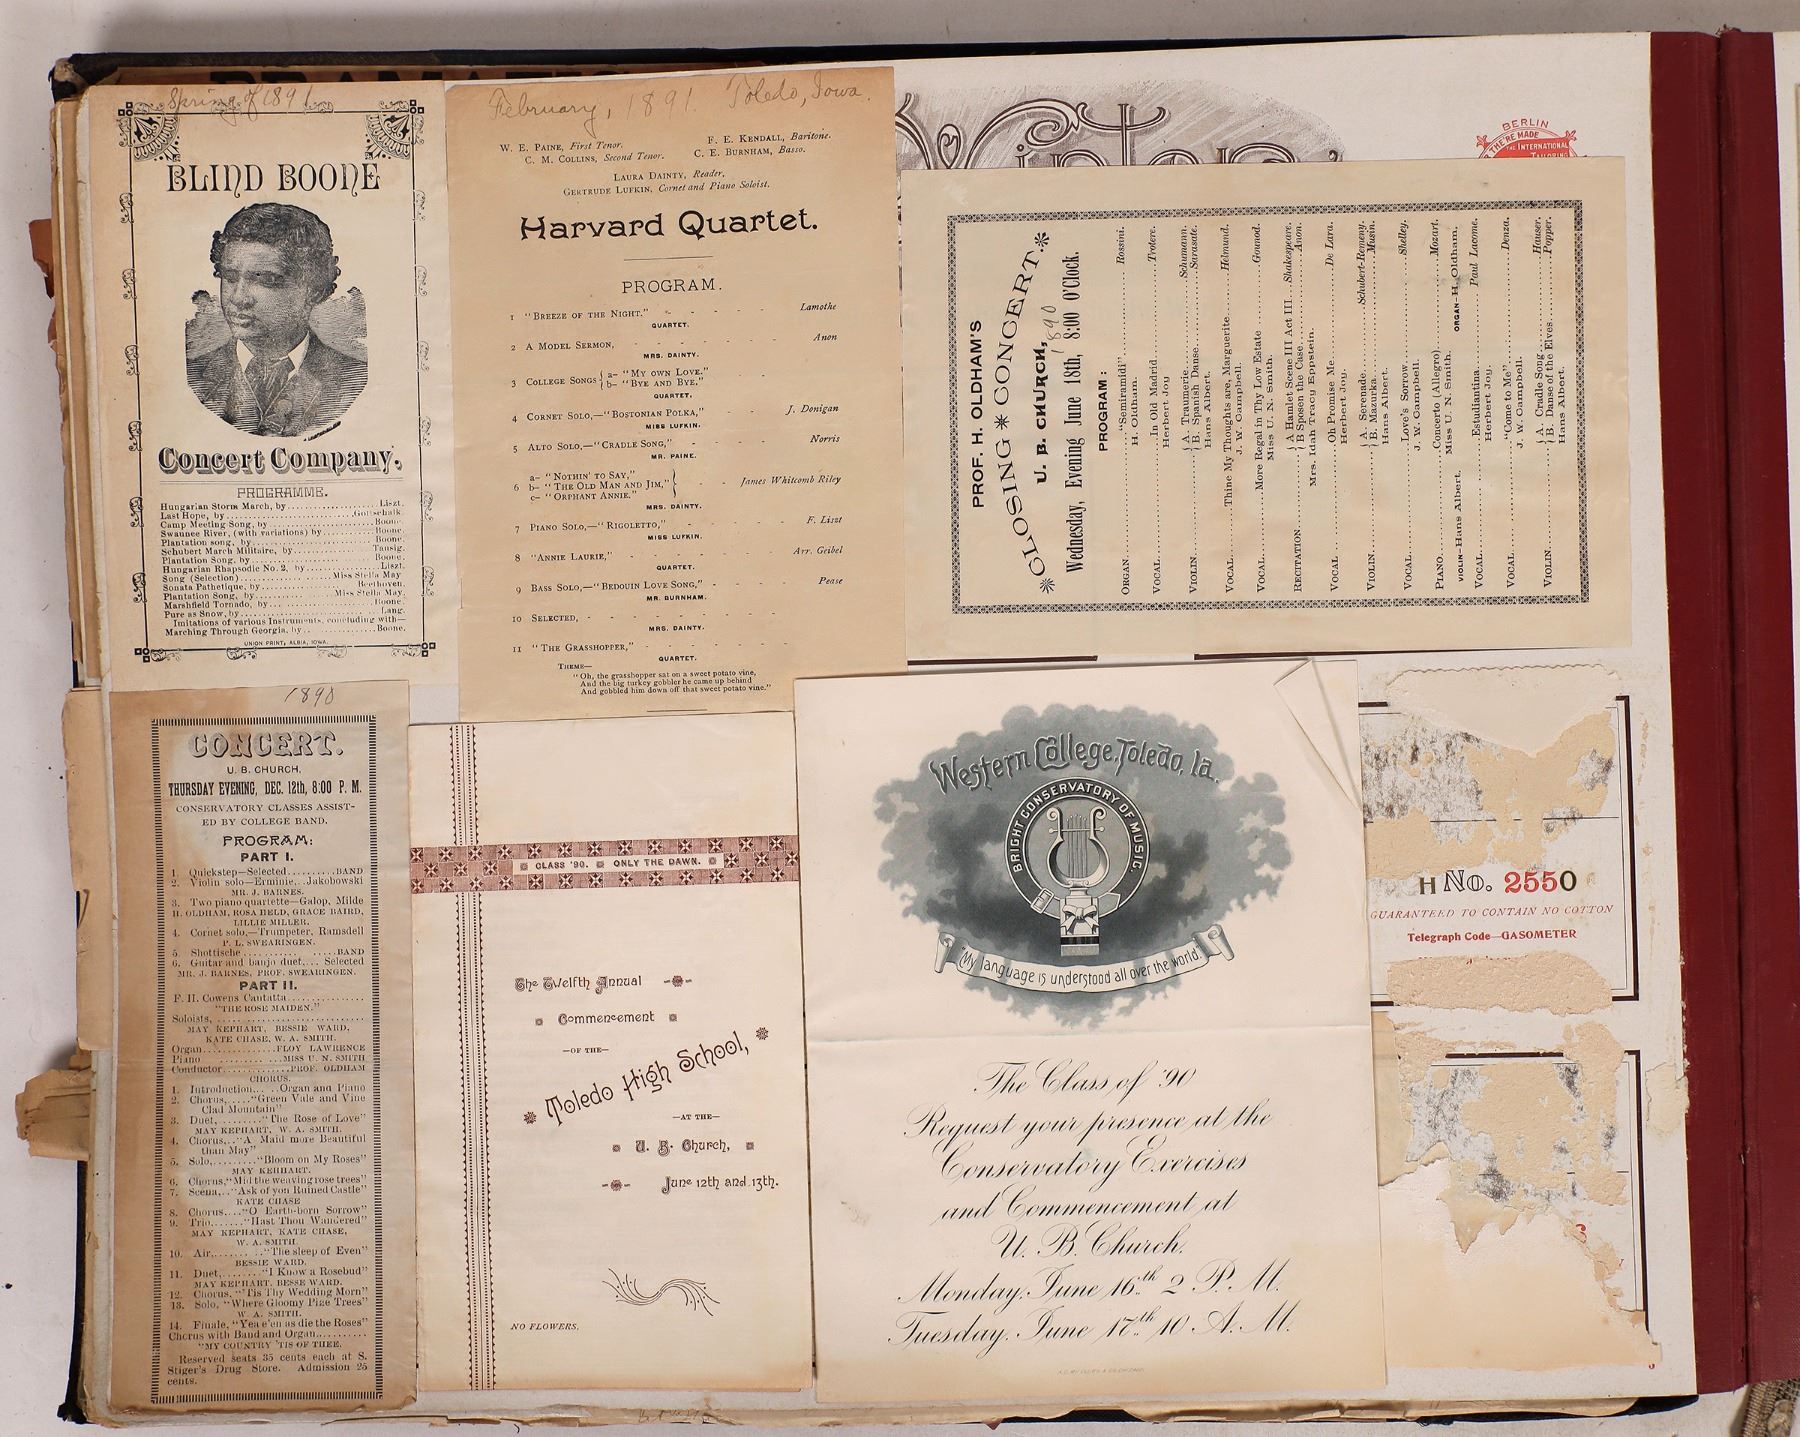 Spring of 1891
BLIND BOONE
Concert Company.
PROGRAMME.
Hungarian Storm March, by....................Liszt.
Last Hope, by....................Gottschalk.
Camp Meeting Song, by....................Boone.
Swaunee River, (with variations) by....................Boone.
Plantation song, by....................Boone.
Schubert March Militaire, by....................Tausig.
Plantation Song, by....................Boone.
Hungarian Rhapsodie No. 2, by....................Liszt.
Song (Selection)....................Miss Stella May
Sonata Pathetique, by....................Beethoven.
Plantation Song, by....................Miss Stella May,
Marshfield Tornado, by....................Boone.
Pure as Snow, by....................Lang.
Imitations of various Instruments, concluding with—
Marching Through Georgia, by....................Boone.
UNION PRINT, ALBIA, IOWA.
February, 1891. Toledo, Iowa.
W. E. PAINE, First Tenor. F. E. KENDALL, Baritone.
C. M. COLLINS, Second Tenor. C. E. BURNHAM, Basso.
LAURA DAINTY, Reader.
GERTRUDE LUFKIN, Cornet and Piano Soloist.
Harvard Quartet.
PROGRAM.
1 "BREEZE OF THE NIGHT." - - - - - Lamothe
QUARTET.
2 A MODEL SERMON, - - - - - Anon
MRS. DAINTY.
3 COLLEGE SONGS { a- "MY OWN LOVE." -
b- "BYE AND BYE."
QUARTET.
4 CORNET SOLO,—"BOSTONIAN POLKA," - - J. Donigan
MISS LUFKIN.
5 ALTO SOLO,—"CRADLE SONG," - - - Norris
MR. PAINE.
a- "NOTHIN' TO SAY,"
6 b- "THE OLD MAN AND JIM," } - - James Whitcomb Riley
c- "ORPHANT ANNIE."
MRS. DAINTY.
7 PIANO SOLO,—"RIGOLETTO," - - - - F. Liszt
MISS LUFKIN.
8 "ANNIE LAURIE," - - - - - - Arr. Geibel
QUARTET.
9 BASS SOLO,—"BEDOUIN LOVE SONG," - - - Pease
MR. BURNHAM.
10 SELECTED, - - - - - - -
MRS. DAINTY.
11 "THE GRASSHOPPER," - - - - -
QUARTET.
THEME—
"Oh, the grasshopper sat on a sweet potato vine,
And the big turkey gobbler he came up behind
And gobbled him down off that sweet potato vine."
BERLIN
THE INTERNATIONAL
TAILORING
PROF. H. OLDHAM'S
CLOSING CONCERT.
U. B. CHURCH, 1890
Wednesday, Evening June 18th, 8:00 O'Clock.
PROGRAM:
ORGAN....................."Semiramidi"....................Rossini.
H. Oldham.
VOCAL....................In Old Madrid....................Trotere.
Herbert Joy
VIOLIN....................{ A. Traumerie....................Schumann.
B. Spanish Danse....................Sarasate.
Hans Albert.
VOCAL..........Thine My Thoughts are, Marguerite..........Helmund.
J. W. Campbell.
VOCAL..........More Regal in Thy Low Estate..........Gounod.
Miss U. N. Smith.
RECITATION..........{ A Hamlet Scene III Act III....Shakespeare.
B Sposen the Case....................Anon.
Mrs. Idah Tracy Eppstein.
VOCAL....................Oh Promise Me....................De Lara.
Herbert Joy.
VIOLIN....................{ A. Serenade..........Schubert-Remeny.
B. Mazurka....................Musin.
Hans Albert.
VOCAL....................Love's Sorrow....................Shelley.
J. W. Campbell.
PIANO....................Concerto (Allegro)....................Mozart.
Miss U. N. Smith.
VIOLIN—Hans Albert. ORGAN—H. Oldham.
VOCAL....................Estudiantina....................Paul Lacome.
Herbert Joy.
VOCAL...................."Come to Me"....................Denza.
J. W. Campbell.
VIOLIN....................{ A. Cradle Song....................Hauser.
B. Danse of the Elves....................Popper.
Hans Albert.
1890
CONCERT.
U. B. CHURCH,
THURSDAY EVENING, DEC. 12th, 8:00 P. M.
CONSERVATORY CLASSES ASSIST-
ED BY COLLEGE BAND.
PROGRAM:
PART I.
1. Quickstep—Selected..........BAND
2. Violin solo—Erminie...Jakobowski
MR. J. BARNES.
3. Two piano quartette—Galop, Milde
H. OLDHAM, ROSA HELD, GRACE BAIRD,
LILLIE MILLER.
4. Cornet solo,—Trumpeter, Ramsdell
P. L. SWEARINGEN.
5. Shottische....................BAND
6. Guitar and banjo duet,... Selected
MR. J. BARNES, PROF. SWEARINGEN.
PART II.
F. H. Cowens Cantatta...............
"THE ROSE MAIDEN."
Soloists,..............................
MAY KEPHART, BESSIE WARD,
KATE CHASE, W. A. SMITH.
Organ....................FLOY LAWRENCE
Piano....................MISS U. N. SMITH
Conductor....................PROF. OLDHAM
CHORUS.
1. Introduction.......Organ and Piano
2. Chorus,....."Green Vale and Vine
Clad Mountain"
3. Duet,........"The Rose of Love"
MAY KEPHART, W. A. SMITH.
4. Chorus,.."A Maid more Beautiful
than May"
5. Solo,........."Bloom on My Roses"
MAY KEPHART.
6. Chorus,"Mid the weaving rose trees"
7. Scena,.."Ask of yon Ruined Castle"
KATE CHASE
8. Chorus...."O Earth-born Sorrow"
9. Trio,......"Hast Thou Wandered"
MAY KEPHART, KATE CHASE,
W. A. SMITH.
10. Air,........."The sleep of Even"
BESSIE WARD.
11. Duet,........"I Know a Rosebud"
MAY KEPHART. BESSE WARD.
12. Chorus, "Tis Thy Wedding Morn"
13. Solo, "Where Gloomy Pine Trees"
W. A. SMITH.
14. Finale, "Yea e'en as die the Roses"
Chorus with Band and Organ...........
"MY COUNTRY 'TIS OF THEE.
Reserved seats 35 cents each at S.
Stiger's Drug Store. Admission 25
cents.
CLASS '90. ONLY THE DAWN.
The Twelfth Annual
Commencement
—OF THE—
Toledo High School,
—AT THE—
U. B. Church,
June 12th and 13th.
NO FLOWERS.
Western College, Toledo, Ia.
BRIGHT CONSERVATORY OF MUSIC.
"My language is understood all over the world."
The Class of '90
Request your presence at the
Conservatory Exercises
and Commencement at
U. B. Church.
Monday, June 16th 2 P. M.
Tuesday, June 17th 10 A. M.
H No. 2550
GUARANTEED TO CONTAIN NO COTTON
Telegraph Code—GASOMETER